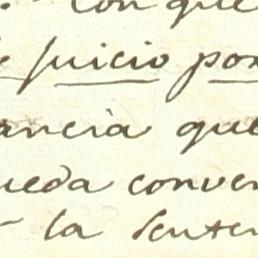 Con que
juicio por
ancia que
ueda conven
la senten